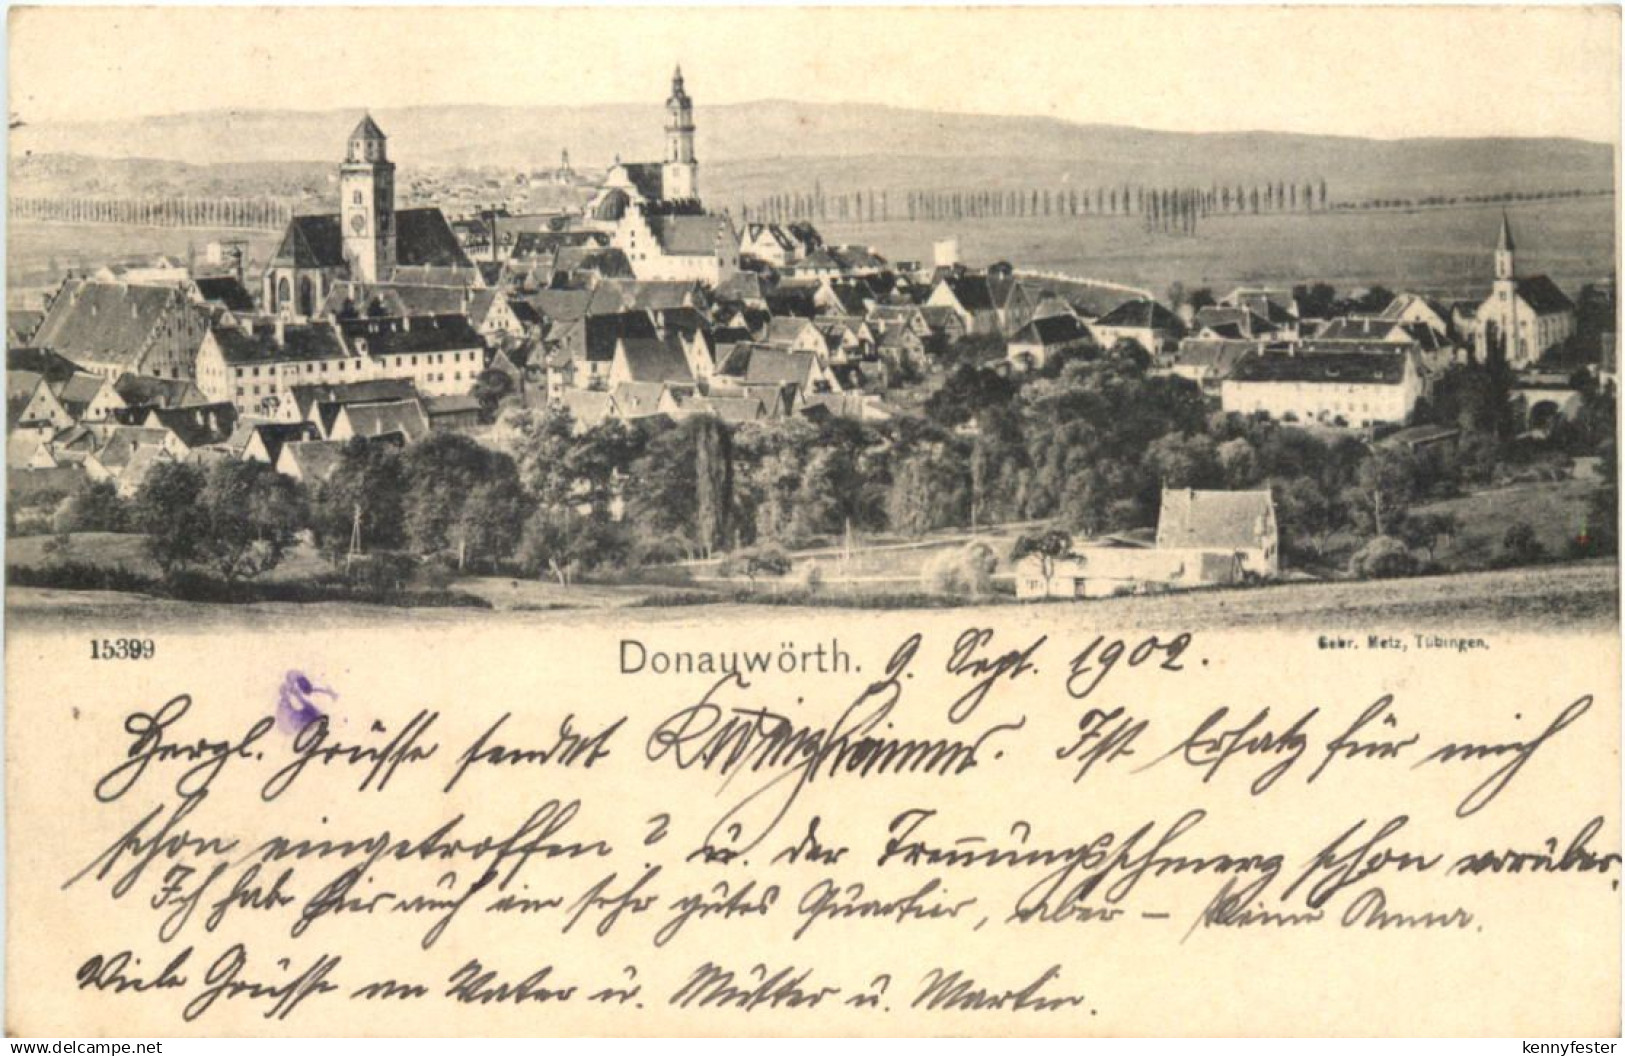 15399
Donauwörth. 9. Sept. 1902.
Gebr. Metz, Tübingen.
Herzl. Grüsse sendet Ist Ersatz für mich
schon eingetroffen? u. der Trennungsschmerz schon vorüber.
Ich habe hier auch ein sehr gutes Quartier, aber – keine Anna.
Viele Grüsse an Vater u. Mutter u. Martin.
www.delcampe.net
kennyfester